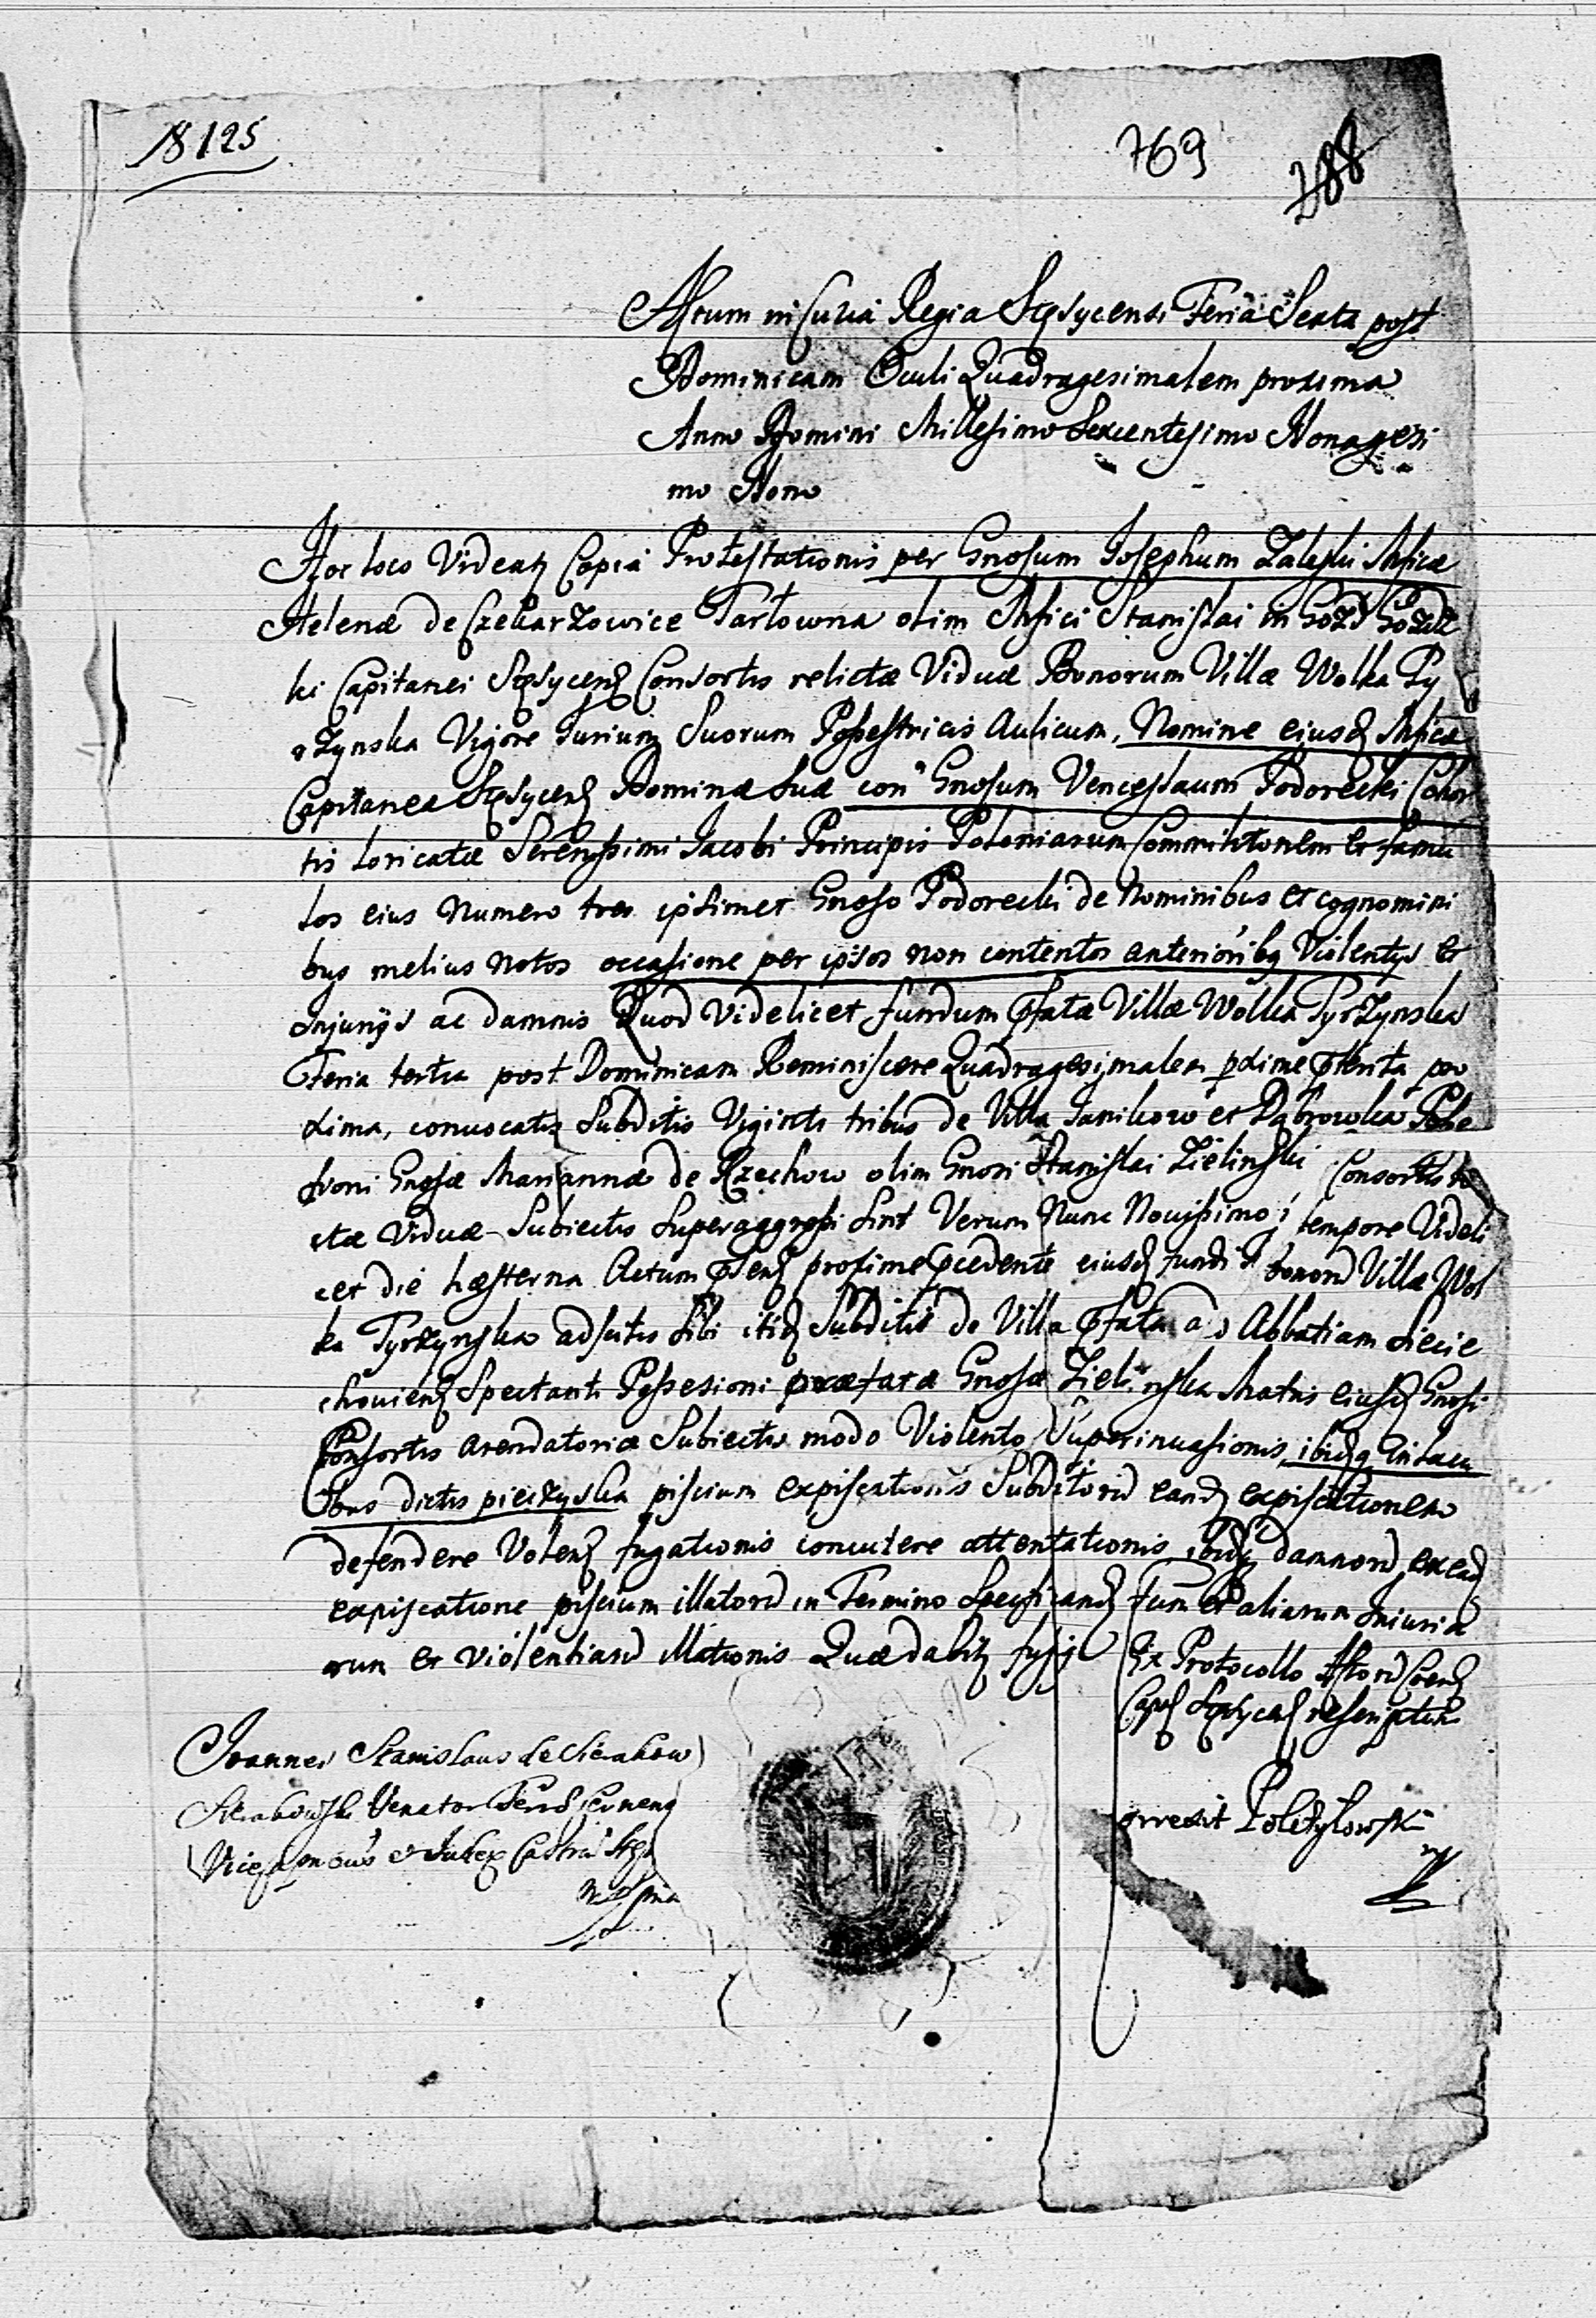 18125
769
288
Actum in Curia Regia Stęsycensi Feria Sexta post
Dominicam Oculi Quadragesimalem proxima
Anno Domini Millesimo Sexcentesimo Nonagesi
mo Nono
Hoc loco Videatz Copia Protestationis per Gnosum Josephum Zaleski Mficæ
Helenæ de Czekarzowice Tarłowna olim Mfici Stanislai in Gozd Gozdz
ki Capitanei Stęsycens Consortis relictæ Viduæ Bonorum Villæ Wolka Ty
rzynska Vigore Jurium Suorum Possestricis Aulicum, Nomine eiusd Mficæ
Capitaneæ Stęsycens Dominæ Suæ con Gnosum Venceslaum Podorecki Cohor
tis loricatæ Serenissimi Jacobi Principis Poloniarum Commilitonem et famu
los eius Numero tres ipsimet Gnoso Podorecki de Nominibus et cognomini
bus melius Notos occasione per ipsos non contentos anterioribq Violentys et
Injurijs ac damnis Quod Videlicet fundum pfatæ Villæ Wolka Tyrzynska
Feria tertia post Dominicam Reminiscere Quadragesimalem pxime pterita pro
xima, convocatis Subditis Viginti tribus de Villa Janikow et Dąbrowka Posse
ssioni Gnosæ Mariannæ de Rzechow olim Gnosi Stanislai Zielinski Consortis re
ctæ Viduæ Subiectis Superaggressi sint Verum Nunc Novissimo tempore Videli
cet die hæsterna Actum pntens proxime pcedente eiusd fundi bonord Villæ Wol
ka Tyrzynska adscitis Sibi itid Subditis de Villa pfata ad Abbatiam Siecie
choviens Spectanti Possesioni præfatæ Gnosæ Zielinska Matris eiusd Gnosi
Consortis arendatoriæ Subiectis modo Violento Superinvasionis ibidq in lacu
bus dictis pieczyska piscium expiscationis Subditord eand expiscationem
defendere Volens fugationis concutere attentationis ibidq damnord ex ead
expiscatione piscium illatord in Termino Specificand Tum et aliarum Iniuria
rum et violentiard illationis Quæ dabitz fusius Ex Protocollo Actord Coens
Capl Stęsycens rescriptum
Joannes Stanislaus de Sierakow
Sierakowski Venator
Vice et Judex Castrén Stęs
mp